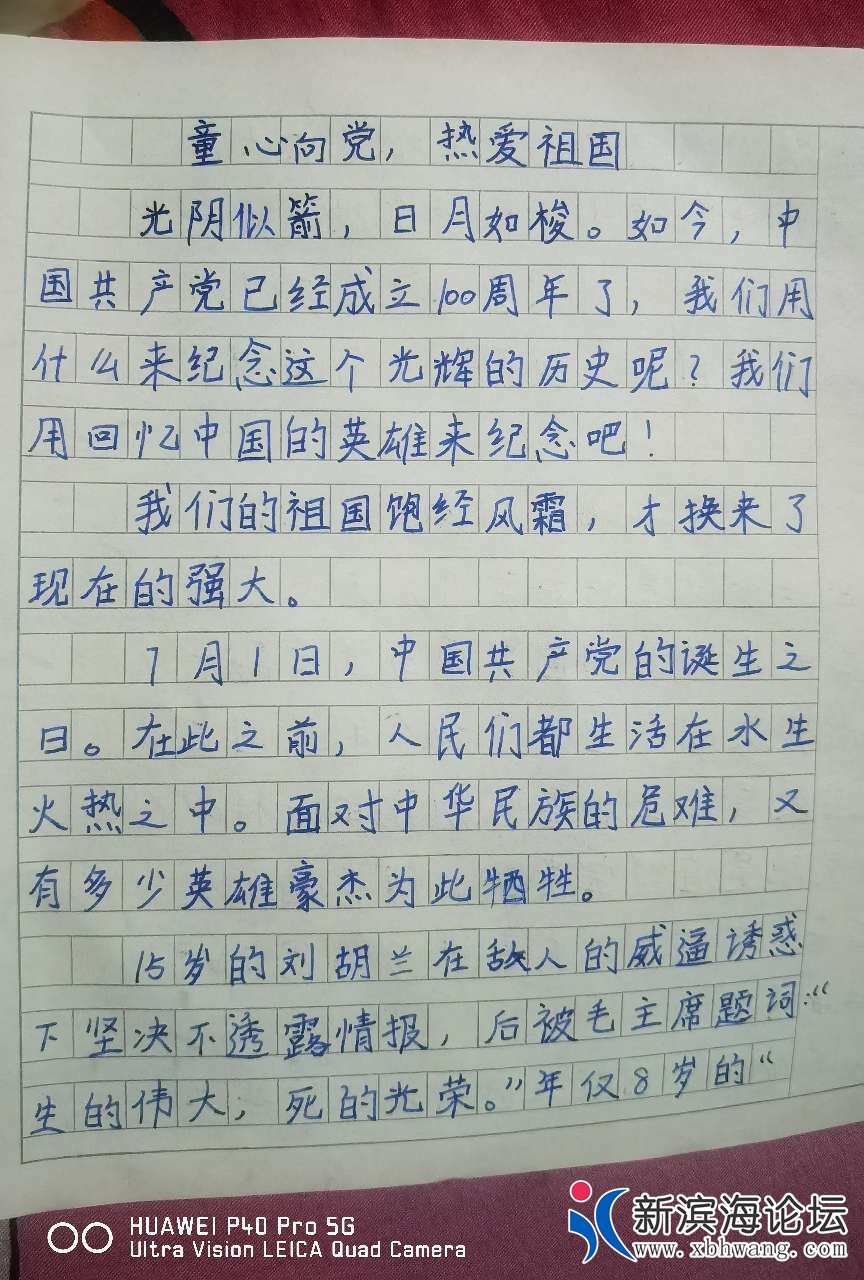 童心向党，热爱祖国
光阴似箭，日月如梭。如今，中
国共产党已经成立100周年了，我们用
什么来纪念这个光辉的历史呢？我们
用回忆中国的英雄来纪念吧！
我们的祖国饱经风霜，才换来了
现在的强大。
7月1日，中国共产党的诞生之
日。在此之前，人民们都生活在水生
火热之中。面对中华民族的危难，又
有多少英雄豪杰为此牺牲。
15岁的刘胡兰在敌人的威逼诱惑
下坚决不透露情报，后被毛主席题词：“
生的伟大，死的光荣。”年仅8岁的“
HUAWEI P40 Pro 5G
Ultra Vision LEICA Quad Camera
新滨海论坛
www.xbhwang.com